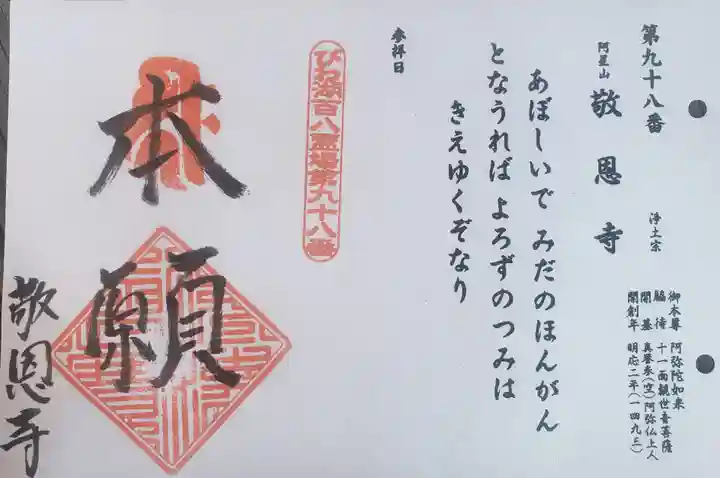 第九十八番
阿星山 敬恩寺 浄土宗
御本尊 阿弥陀如来
脇侍 十一面観世音菩薩
開基 真誉参(空)阿弥仏上人
開創年 明応二年(一四九三)
あぼしいで みだのほんがん
となうれば よろずのつみは
きえゆくぞなり
参拝日
びわ湖百八霊場第九十八番
本願
敬恩寺